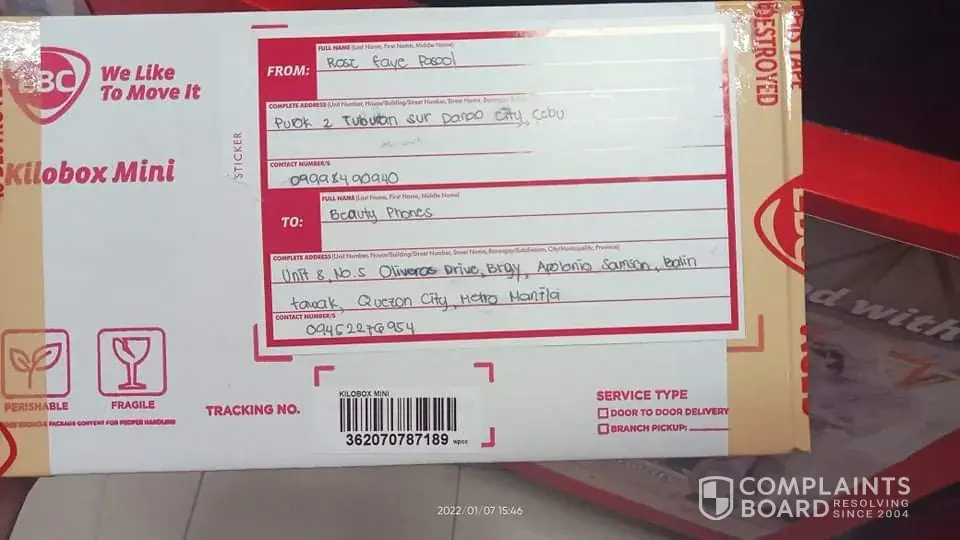 LBC
We Like
To Move It
Kilobox Mini
STICKER
FROM:
FULL NAME (Last Name, First Name, Middle Name)
Rose Faye
COMPLETE ADDRESS (Unit Number, House/Building/Street Number, Street Name,
Purok 2 Tubutan sur City, Cebu
CONTACT NUMBER/S
09998490940
TO:
FULL NAME (Last Name, First Name, Middle Name)
Beauty Phones
COMPLETE ADDRESS (Unit Number, House/Building/Street Number, Street Name, Barangay/Subdivision, City/Municipality, Province)
Unit 8, No.5 Oliveros Drive, Brgy, Apolonio Samson, Balin
tawak, Quezon City, Metro Manila
CONTACT NUMBER/S
09452276954
PERISHABLE
FRAGILE
PACKAGE CONTENT FOR PROPER HANDLING
TRACKING NO.
KILOBOX MINI
362070787189 wpcc
SERVICE TYPE
DOOR TO DOOR DELIVERY
BRANCH PICKUP:
DESTROYED
TAPE
LBC
d with
2022/01/07 15:46
COMPLAINTS
BOARD RESOLVING
SINCE 2004